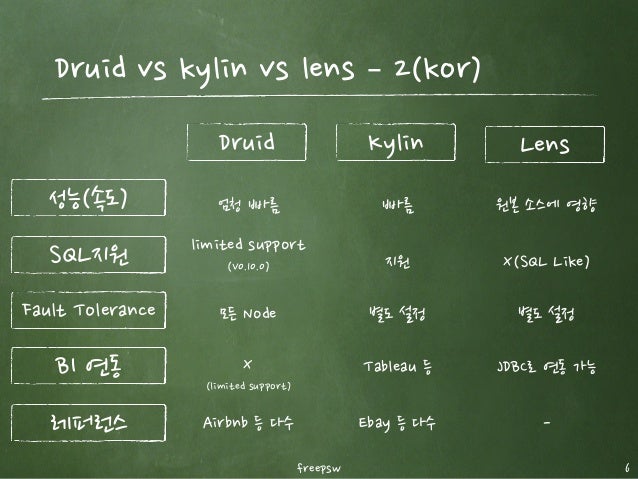 Druid vs kylin vs lens - 2(kor)
Druid
Kylin
Lens
성능(속도)
엄청 빠름
빠름
원본 소스에 영향
SQL지원
limited support
(v0.10.0)
지원
X(SQL Like)
Fault Tolerance
모든 Node
별도 설정
별도 설정
BI 연동
X
(limited support)
Tableau 등
JDBC로 연동 가능
레퍼런스
Airbnb 등 다수
Ebay 등 다수
-
freepsw
6